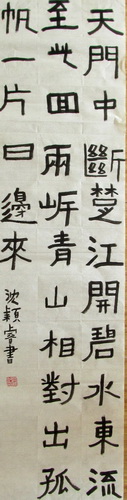 天門中斷楚江開碧水東流
至此回兩岸青山相對出孤
帆一片日邊來
沈穎睿書